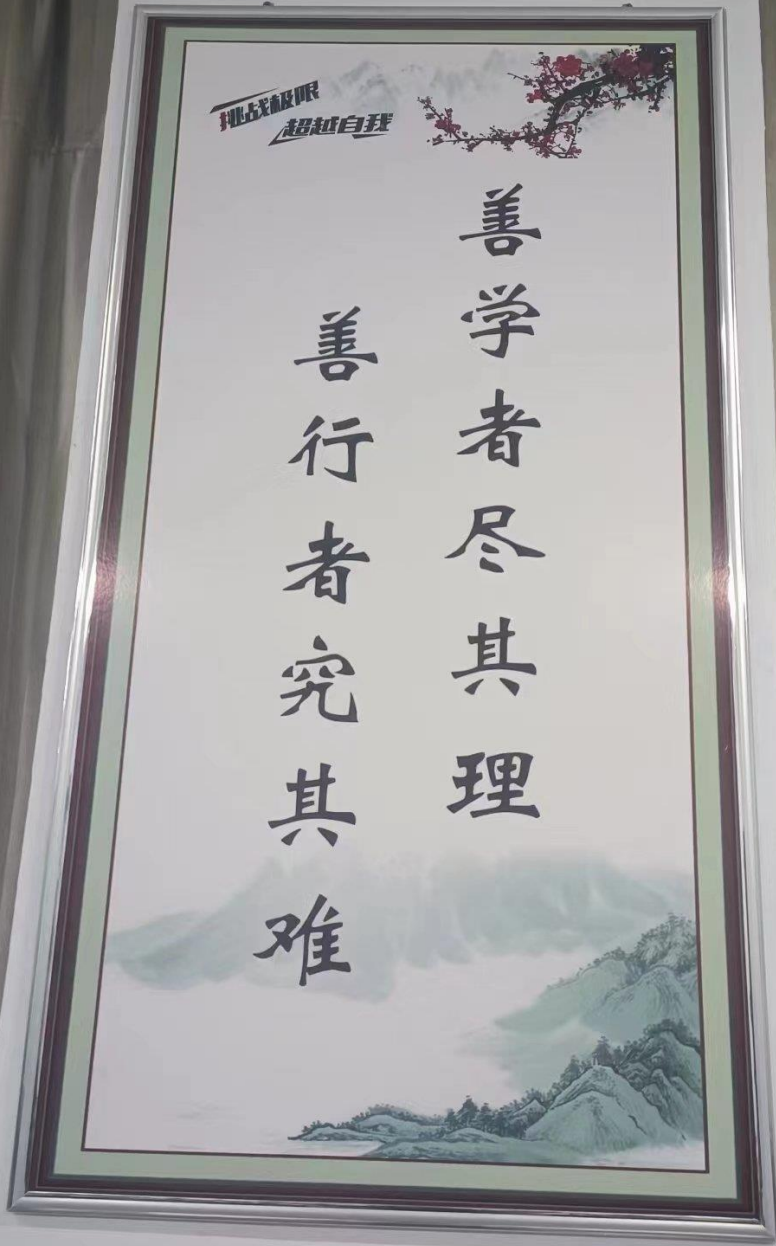 挑战极限
超越自我
善学者尽其理
善行者究其难